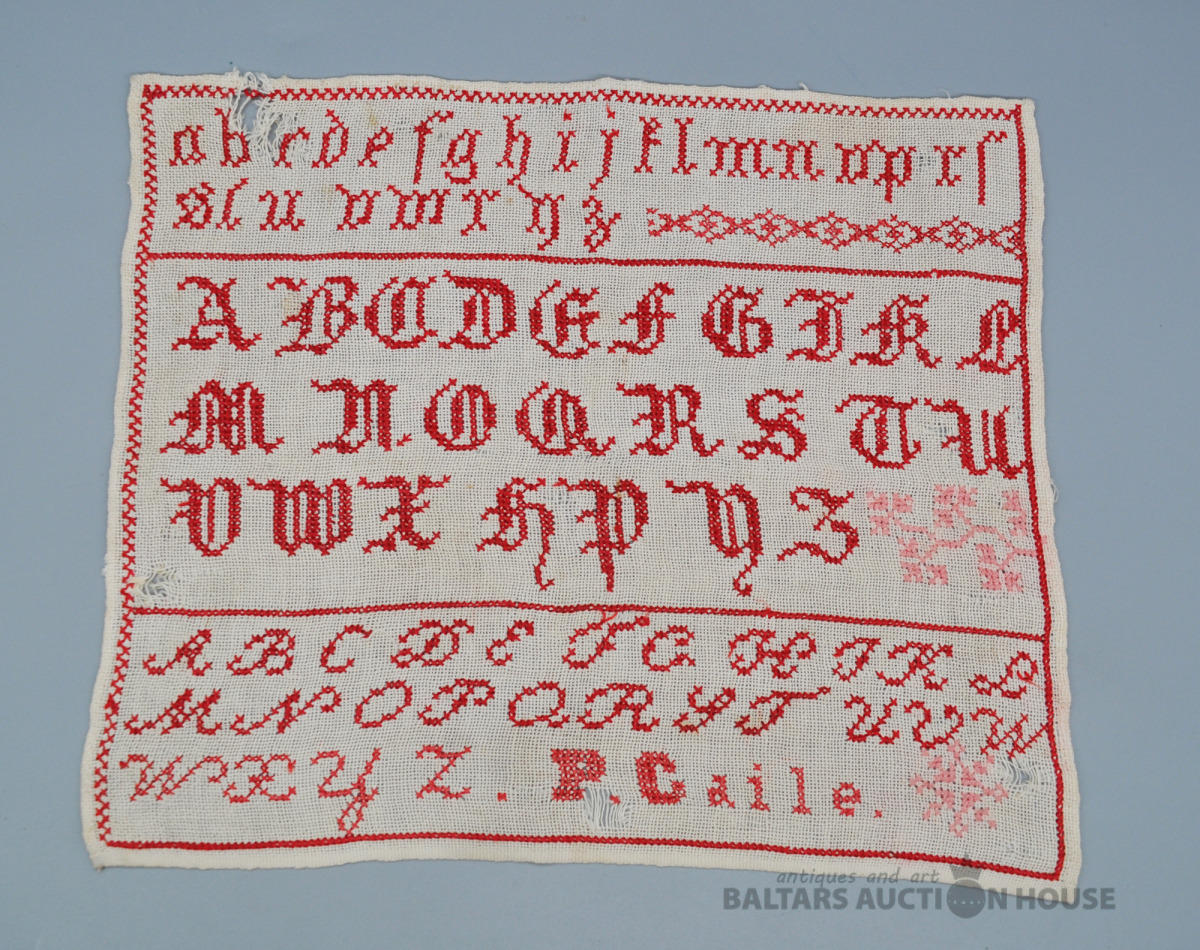 a b c d e f g h i j k l m n o p r ſ
s t u v w x y z
A B C D E F G I K L
M N O Q R S T U
V W X H P Y Z
A B C D E F G H I K L
M N O P Q R S T U V W
W X Y Z . P. Caile.
antiques and art
BALTARS AUCTION HOUSE